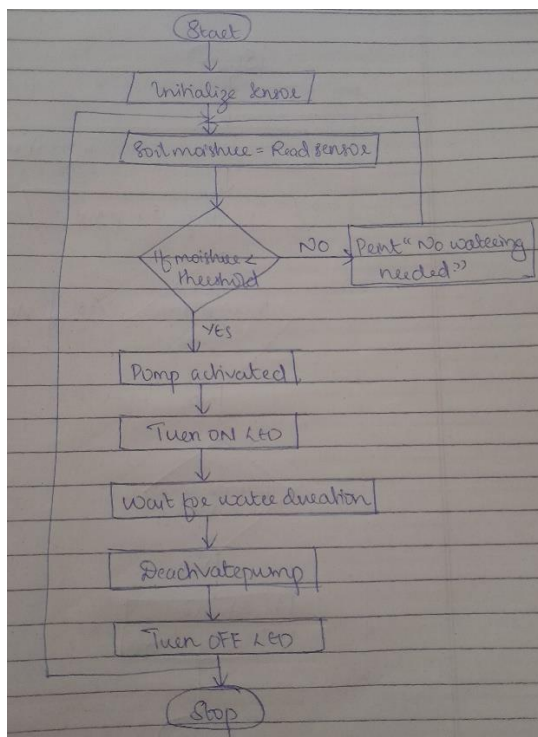 Start
Initialize sensor
Soil moisture = Read sensor
If moisture <
threshold
NO
Print "No watering
needed"
YES
Pump activated
Turn ON LED
Wait for water duration
Deactivate pump
Turn OFF LED
Stop